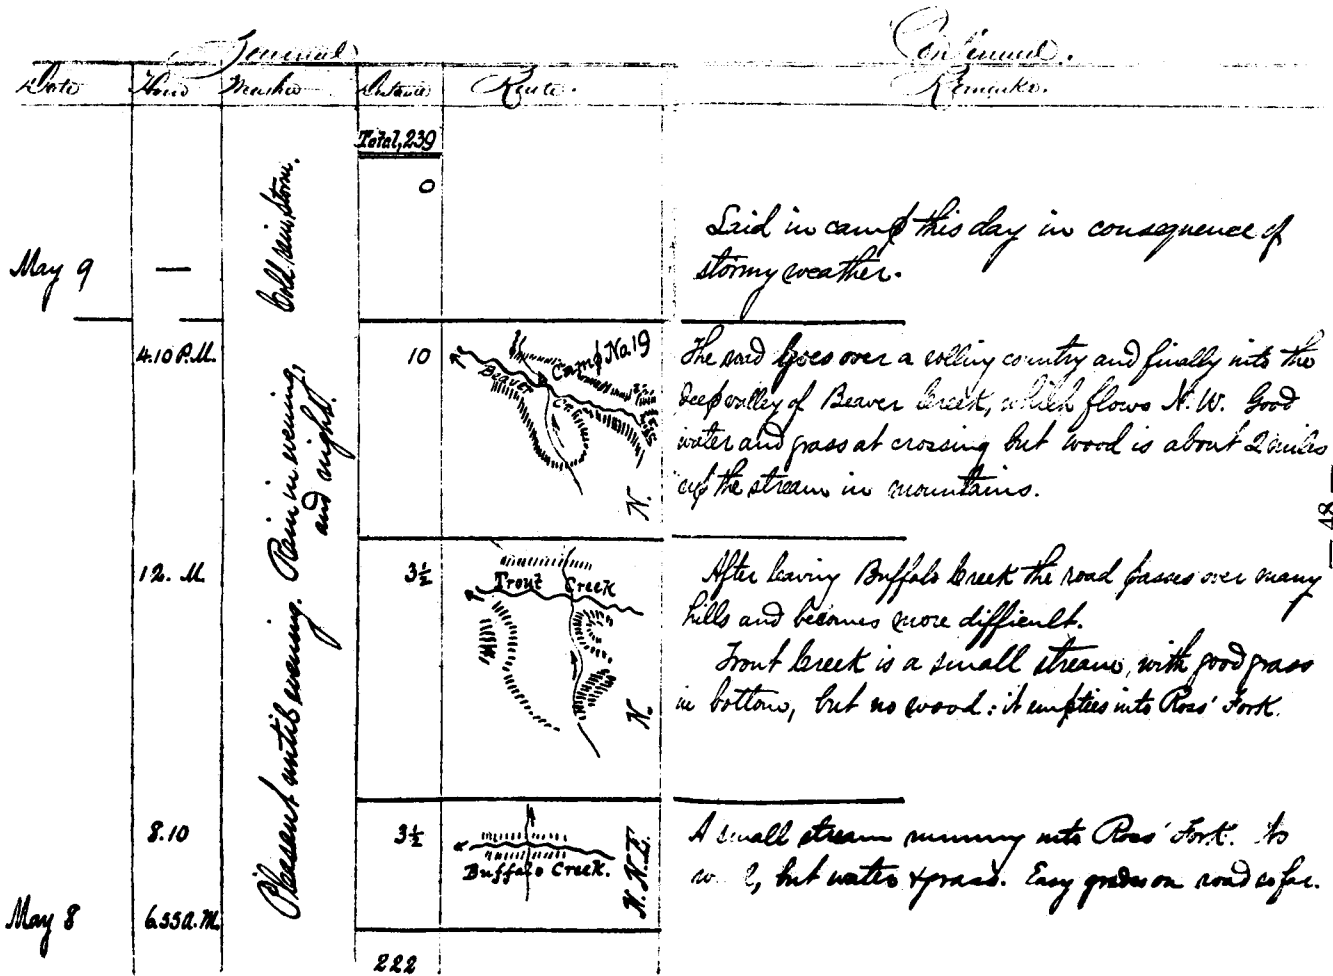 Journal Continued.
Date Hour Weather Distance Route. Remarks.
Total, 239
0
May 9 —
Cold rain storm.
Laid in camp this day in consequence of
stormy weather.
4.10 P.M.
10
Camp No. 19
Beaver Cr.
N.
The road goes over a rolling country and finally into the
deep valley of Beaver Creek, which flows N.W. Good
water and grass at crossing but wood is about 2 miles
up the stream in mountains.
Pleasant until evening. Rain in evening,
and night.
— 48 —
12. M.
3½
Trout Creek
N.
After leaving Buffalo Creek the road passes over many
hills and becomes more difficult.
Trout Creek is a small stream, with good grass
in bottom, but no wood: it empties into Ross' Fork.
8.10
3½
Buffalo Creek.
N.N.E.
A small stream running into Ross' Fork. No
but water & grass. Easy grades on road so far.
May 8
6.55 A.M.
222